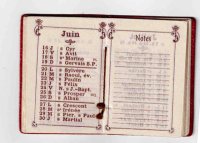 Juin
16 J s Cyr
17 V s Avit
18 S sᵉ Marine
19 D s Gervais S.P.
20 L s Sylvère
21 M s Raoul, év.
22 M s Paulin
23 J s Félix
24 V N. s J.-Bapt.
25 S s Prosper
26 D s Alban
27 L s Crescent
28 M s Irénée
29 M ss Pier. s Paul
30 J s Martial
Notes